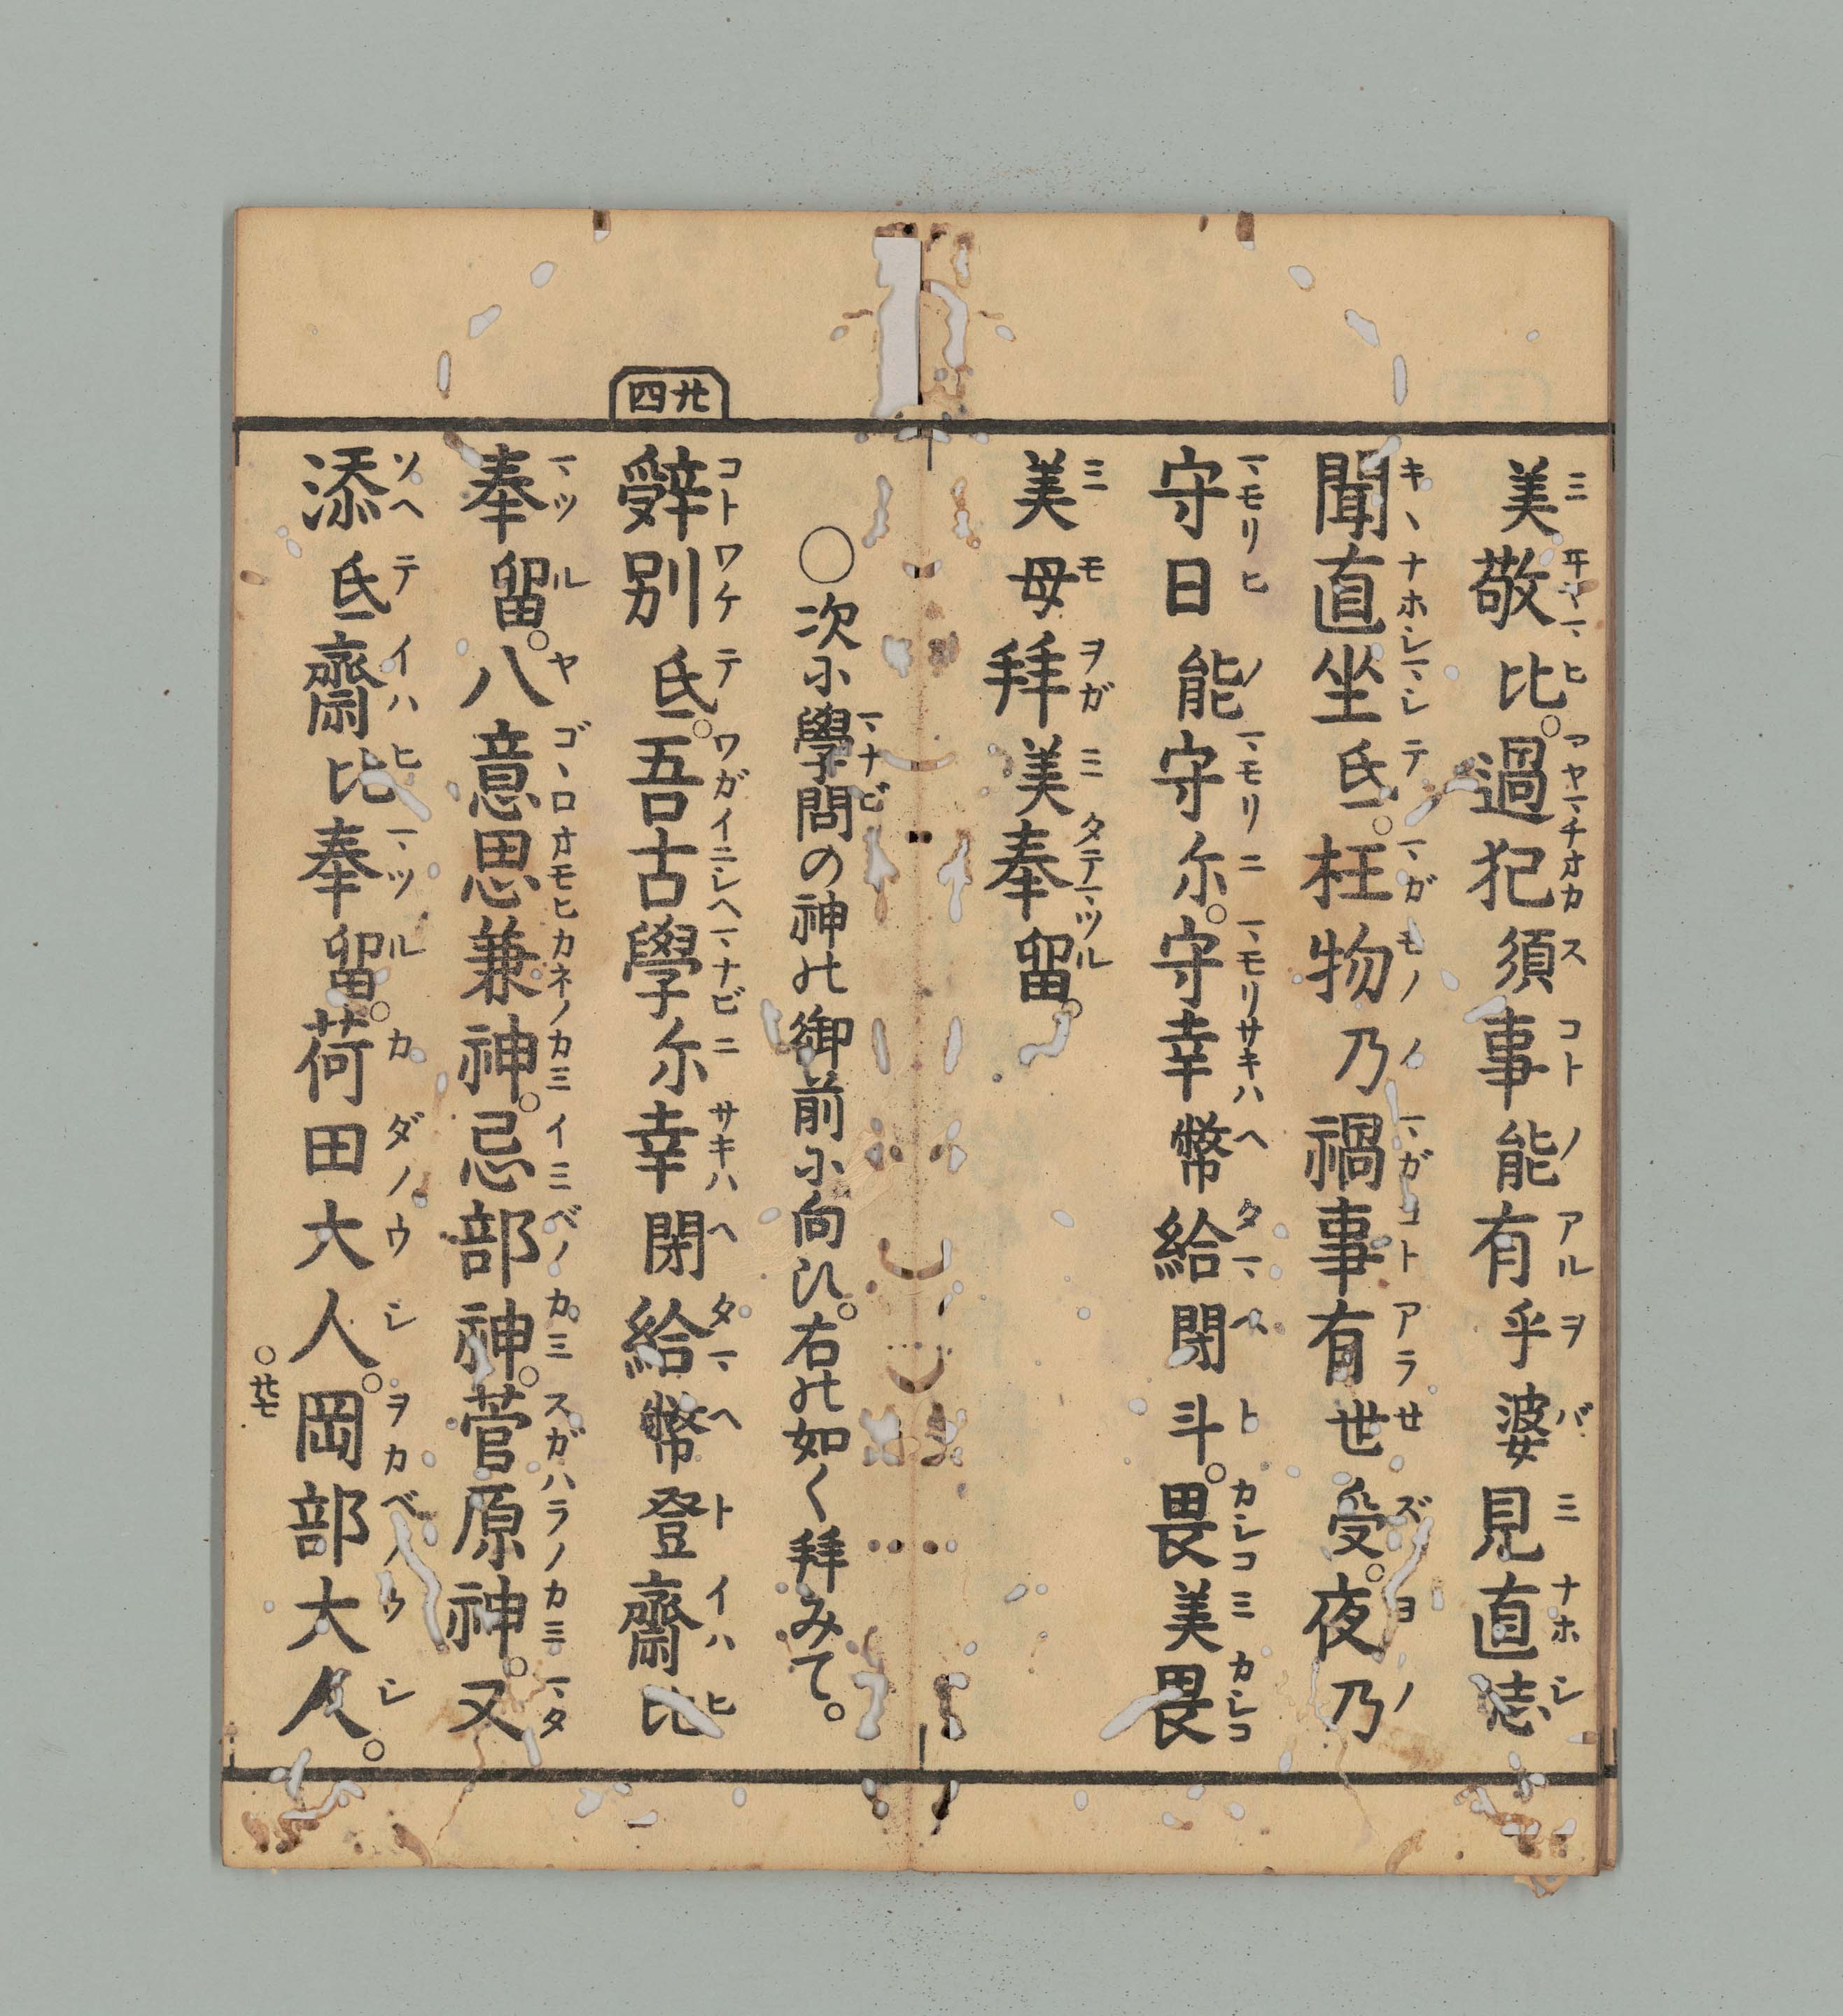 美敬比。過犯須事能有乎婆見直志
聞直坐氐。枉物乃禍事有世受。夜乃
守日能守尓。守幸幣給閇斗。畏美畏
美母拜美奉留。
○次に學問の神の御前に向ひ。右の如く拜みて。
廿四
辭別氐。吾古學尓幸閇給幣登齋比
奉留。八意思兼神。忌部神。菅原神。又
添氐齋比奉留。荷田大人。岡部大人。
○廿七